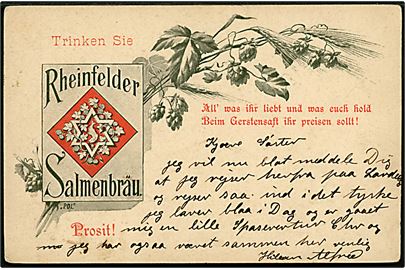 Trinken Sie
Rheinfelder
Salmenbräu.
All' was ihr liebt und was euch hold
Beim Gerstensaft ihr preisen sollt!
Prosit!
Kjære Søster
jeg vil nu blot meddele Dig
at jeg rejser herfra paa Lørdag
og rejser saa ind i det tyske
jeg laver blaa i Dag og er gaaet
mig en lille Spaseretur
jeg har ogsaa været sammen her venlig
Hilsen Alfred